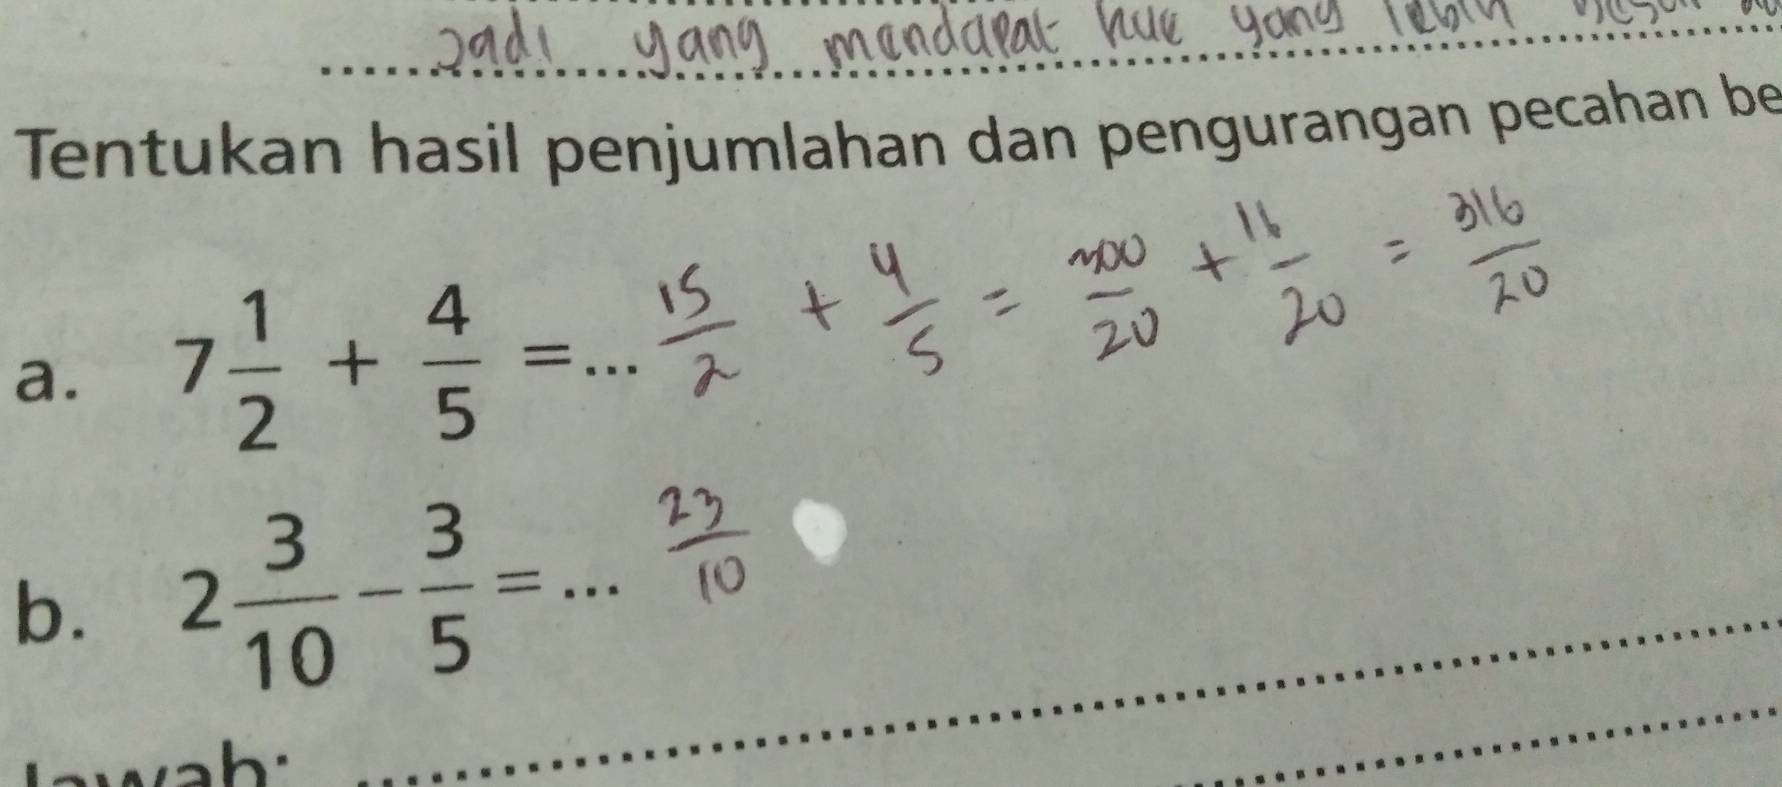 Jadi yang mendapat kue yang lebih
Tentukan hasil penjumlahan dan pengurangan pecahan be
a. 7 1/2 + 4/5 = ... 15/2 + 4/5 = 300/20 + 16/20 = 316/20
b. 2 3/10 - 3/5 = ... 23/10
Jawab: